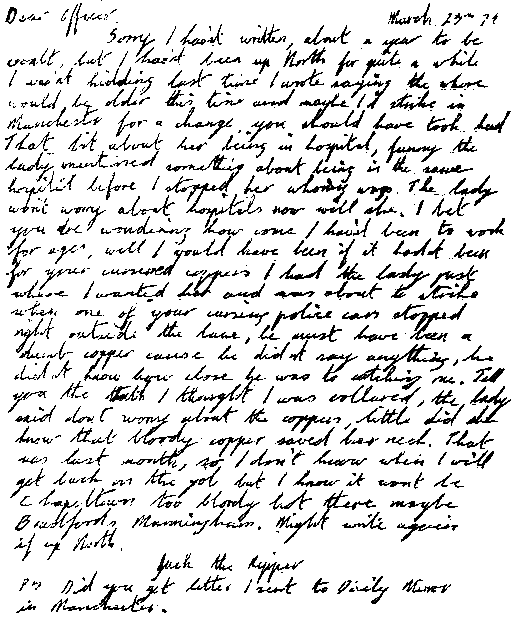 Dear Officer, March 23rd 79
Sorry I hasn't written, about a year to be
exact, but I hasn't been up North for quite a while
I wasn't kidding last time I wrote saying the whore
would be older this time and maybe I'd strike in
Manchester for a change, you should have took heed
That bit about her being in hospital, funny the
lady mentioned something about being in the same
hospital before I stopped her whoring ways. The lady
won't worry about hospitals now will she. I bet
you are wondering how come I hasn't been to work
for ages, well I would have been if it hadnt been
for your cursered coppers I had the lady just
where I wanted her and was about to strike
when one of your cursing police cars stopped
right outside the lane, he must have been a
dumb copper cause he didnt say anything, he
didnt know how close he was to catching me. Tell
you the truth I thought I was collared, the lady
said dont worry about the coppers, little did she
know that bloody copper saved her neck. That
was last month, so I don't know when I will
get back on the job but I know it wont be
Chapeltown too bloody hot there maybe
Bradfords Manningham. Might write again
if up North.
Jack the Ripper
PS Did you get letter I sent to Daily Mirror
in Manchester.